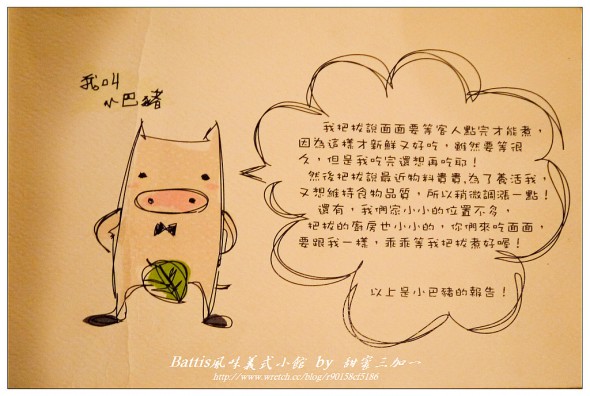 我叫
小巴豬
我把拔說面面要等客人點完才能煮，
因為這樣才新鮮又好吃，雖然要等很
久，但是我吃完還想再吃耶！
然後把拔說最近物料貴貴,為了養活我,
又想維持食物品質，所以稍微調漲一點！
還有，我們家小小的位置不多，
把拔的廚房也小小的，你們來吃面面，
要跟我一樣，乖乖等我把拔煮好喔！
以上是小巴豬的報告！
Battis風味義式小館 by 甜蜜三加一
http://www.wretch.cc/blog/r90158cf5186